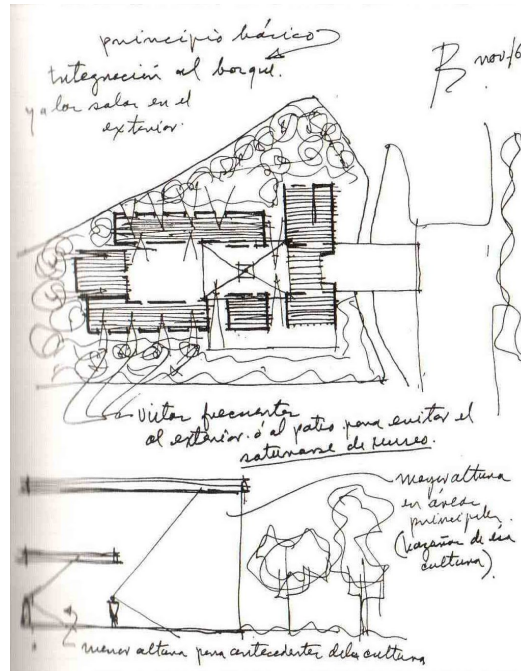 principio básico
Integración al bosque.
y a las salas en el
exterior.
nov/6
vistas frecuentes
al exterior ó al patio para evitar el
saturarse de museo.
mayor altura
en áreas
principales
(hazañas de esa
cultura).
menor altura para antecedentes de la cultura